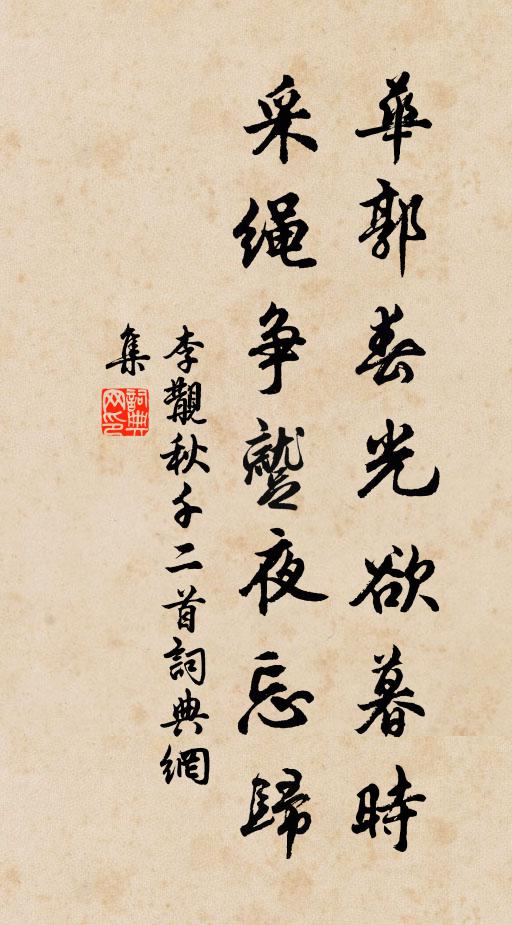 華郭春光欲暮時
采绳争蹙夜忘歸
李覯秋千二首詞典網
集
詞典
网印